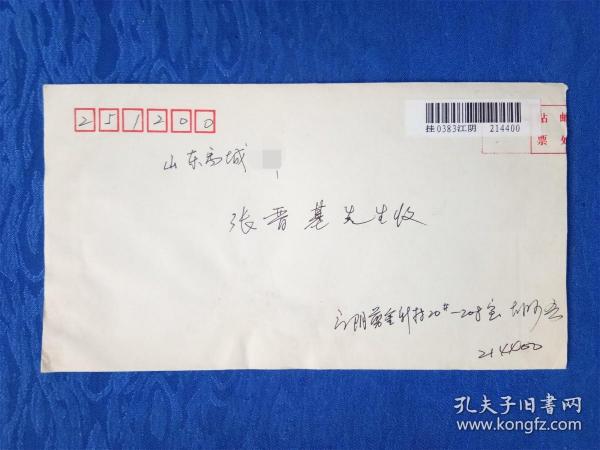 251200
挂0383江阴 214400
邮
贴 处
票
山东禹城
张晋基先生收
江阴 新村20#-208室
214400
孔夫子旧书网
www.kongfz.com